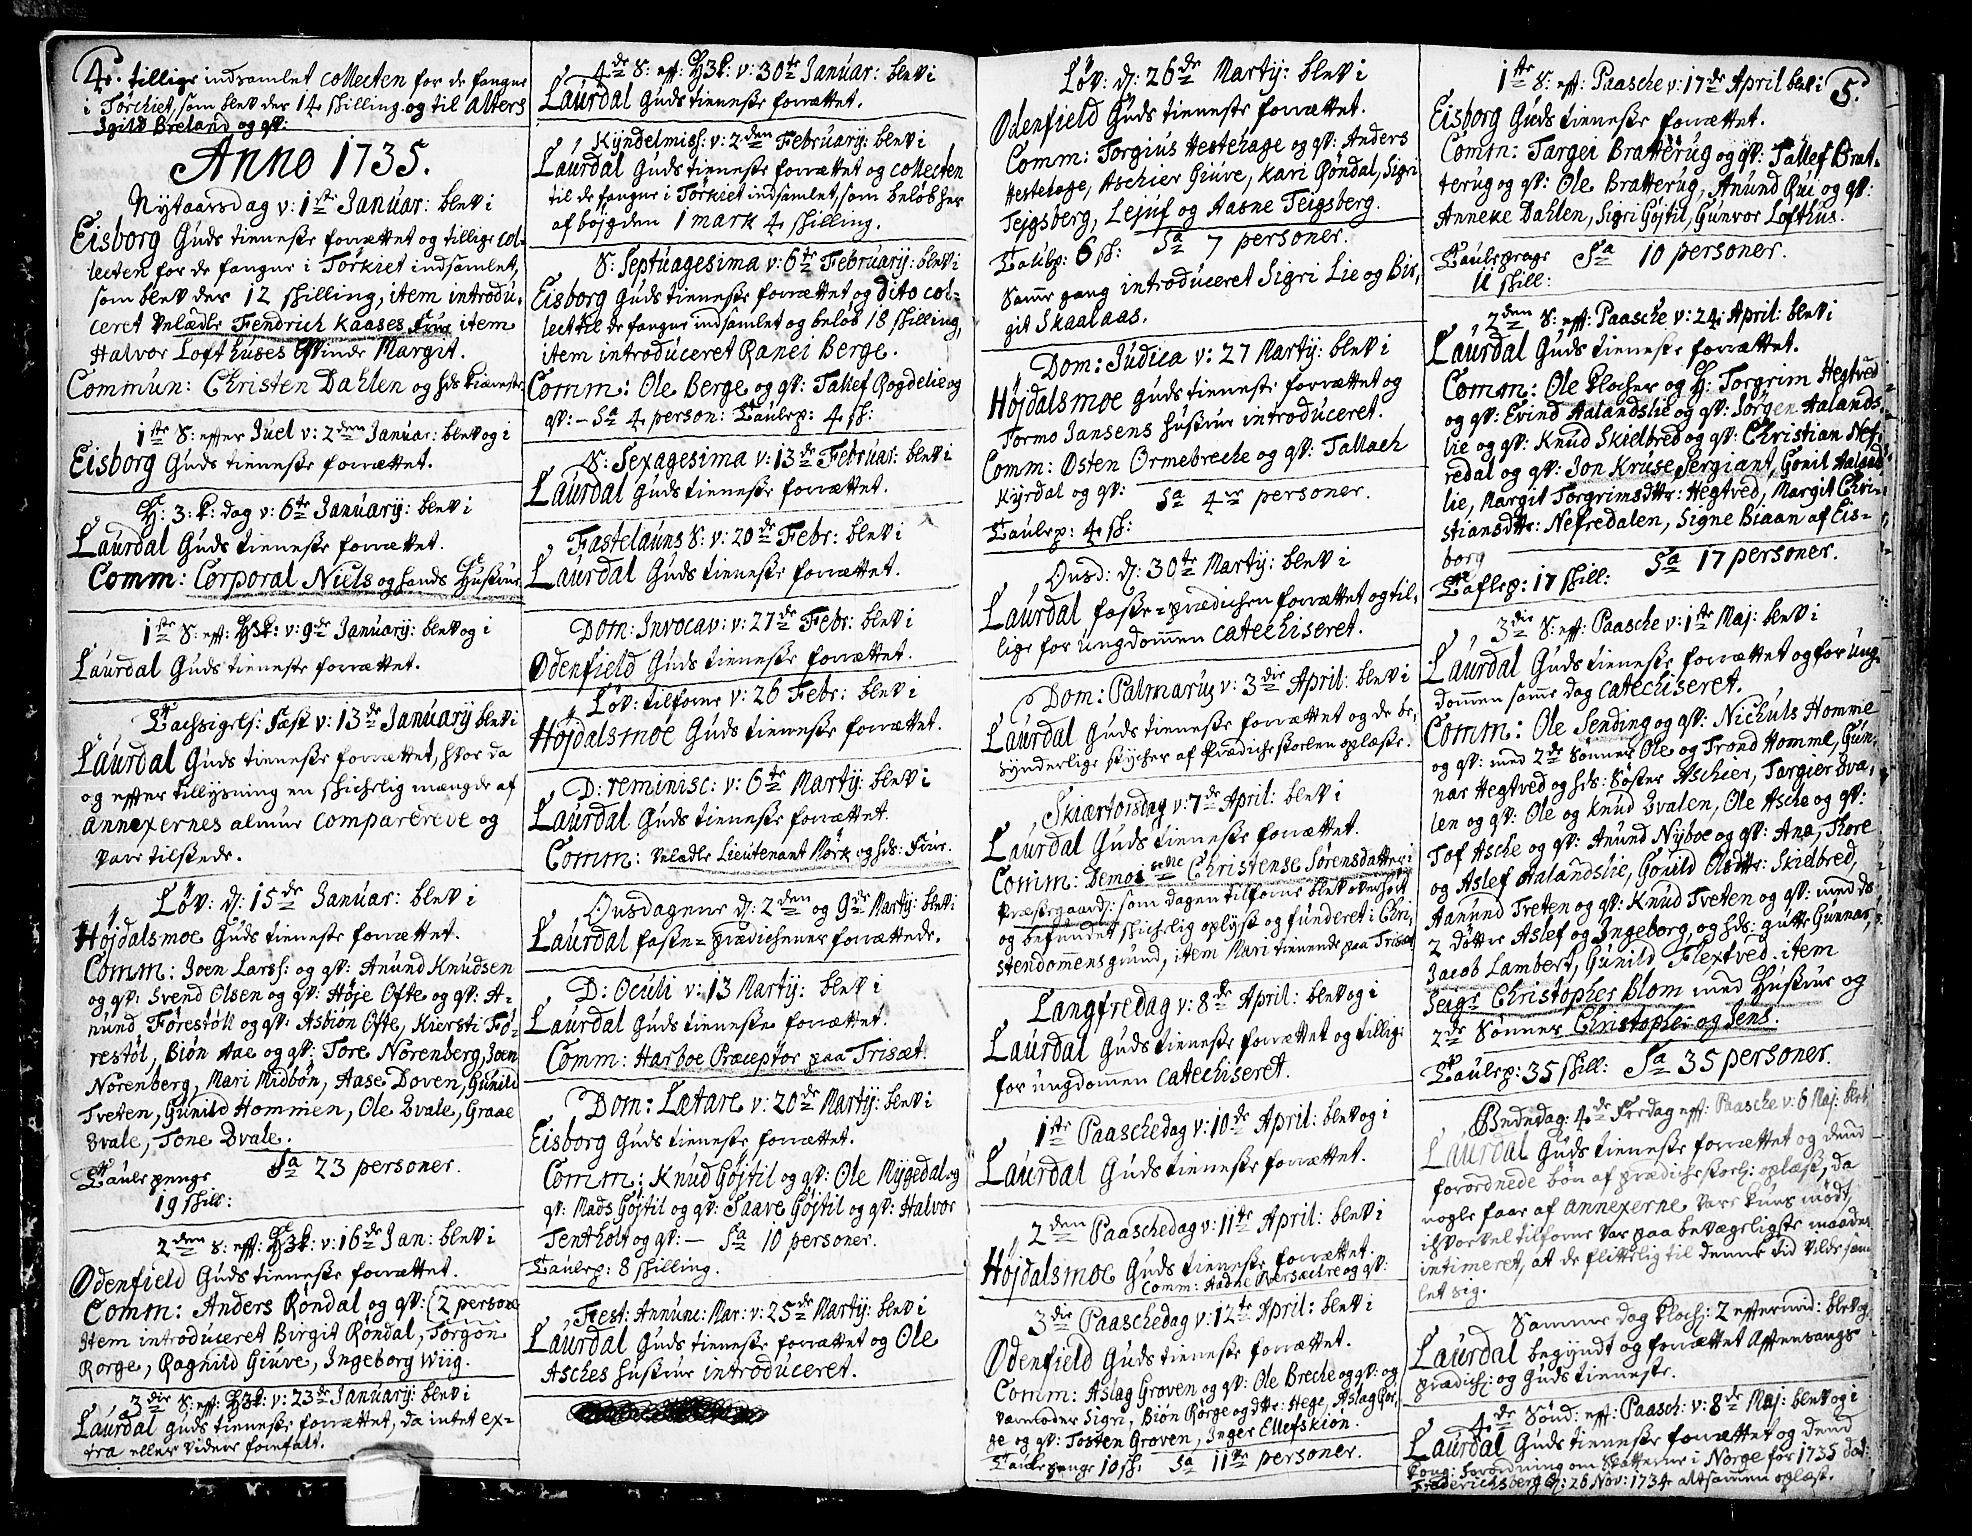 4. tillige indsamlet collecten for de fangne
i Törckiet, som blev der 14 skilling og til alters
Igild Breland og qv:
Anno 1735.
Nytaarsdag v: 1ste Januar: blev i
Eisborg Guds tieneste forrættet og tillige col-
lecten for de fangne i Törkiet indsamlet,
som blev der 12 skilling, item introdu-
ceret Velædle Fendrich Kaases Frue item
Halvor Lofthuses Qvinde Margit.
Commun: Christen Dahlen og hds kiæreste
1ste S: efter Juel v: 2den Januar: blev og i
Eisborg Guds tieneste forrættet.
H: 3: K: dag v: 6te Januarij: blev i
Laurdal Guds tieneste forrættet.
Comm: Corporal Niels og hands Hustrue
1ste S: eff: H3K: v: 9de Januarij: blev og i
Laurdal Guds tieneste forrættet.
Tachsigels: Fæst v: 13de Januarij blev i
Laurdal Guds tieneste forrættet, hvor da
og efter tillysning en skichelig mængde af
Annexernes almue comparerede og
vare tilstede.
Löv: d: 15de Januar: blev i
Höjdalsmoe Guds tieneste forrættet.
Comm: Joen Larss: og qv: Anund Knudsen
og qv: Svend Olsen og qv: Höje Ofte og qv: A-
nund Förestöll og qv: Asbiön Ofte, Kiersti Fö-
restöl, Biön Aae og qv: Tore Norenberg, Joen
Norenberg, Mari Midbön, Aase Doven, Gunild
Tveten, Gunild Hommen, Ole Dvale, Graae
Dvale, Tone Dvale.
Taulepenge Sa 23 personer.
19 skill:
2den S: eff: H3K: v: 16de Jan: blev i
Odenfield Guds tieneste forrættet.
Comm: Anders Röndal og qv: (2 persone
Item introduceret Birgit Röndal, Torgon
Rorge, Ragnild Giuve, Ingeborg Wiig.
3die S: eff: H3K: v: 23de Januarij: blev i
Laurdal Guds tieneste forrættet, da intet ex-
tra eller videre forefalt.
4de S: eff: H3K: v: 30te Januar: blev i
Laurdal Guds tieneste forrættet.
Kyndelmiss: v: 2den Februarij: blev i
Laurdal Guds tieneste forrættet og collecten
til de fangne i Törkiet indsamlet, som belöb her
af böjgden 1 mark 4 skilling.
S: Septuagesima v: 6te Februarij: blev i
Eisborg Guds tieneste forrættet og dito col-
lect til de fangne indsamlet og belöb 18 skilling,
item introduceret Ranei Berge.
Comm: Ole Berge og qv: Tallef Rogdelie og
qv: – Sa 4 person: Taulep: 4 sk:
S: Sexagesima v: 13de Februar: blev i
Laurdal Guds tieneste forrættet.
Fastelauns S: v: 20de Febr: blev i
Laurdal Guds tieneste forrættet.
Dom: Invocav: v: 27de Febr: blev i
Odenfield Guds tieneste forrættet.
Löv: tilforne v: 26 Febr: blev i
Höjdalsmoe Guds tieneste forrættet.
D: reminisc: v: 6te Martij: blev i
Laurdal Guds tieneste forrættet.
Comm: Velædle Lieutenant Mörk og hds: Frue.
Onsdagene d: 2den og 9de Martij: blev i
Laurdal faste-prædichener forrættede.
D: Oculi v: 13 Martij: blev i
Laurdal Guds tieneste forrættet.
Comm: Harboe Præceptor paa Trisæt.
Dom: Lætare v: 20de Martij: blev i
Eisborg Guds tieneste forrættet.
Comm: Knud Göjtil og qv: Ole Mygedal og
qv: Mads Göjtil og qv: Saave Göjtil og qv: Halvor
Tentholt og qv: – Sa 10 personer.
Taulep: 8 skilling.
Fest: Annunc: Mar: v: 25de Martij: blev i
Laurdal Guds tieneste forrættet og Ole
Asches hustrue introduceret.
Löv: d: 26de Martij: blev i
Odenfield Guds tieneste forrættet.
Comm: Torgius Hestehage og qv: Anders
Hestehage, Aschier Giuve, Kari Röndal, Sigri
Tejgsberg, Lejuf og Aasne Teigsberg.
Taulep: 6 sk: Sa 7 personer.
Samme gang introduceret Sigri Lie og Bir-
git Skaalaas.
Dom: Judica v: 27 Martij: blev i
Höjdalsmoe Guds tieneste forrættet og
Tormo Jansens hustrue introduceret.
Comm: Osten Ormebreche og qv: Tallach
Kyrdal og qv: Sa 4re personer.
Taulep: 4 sk:
Onsd: d: 30te Martij: blev i
Laurdal faste-prædichen forrættet og til-
lige for ungdommen catechiseret.
Dom: Palmarum v: 3die April: blev i
Laurdal Guds tieneste forrættet og de be-
synderlige stycher af Prædichestolen oplæste.
Skiærtorsdag v: 7de April: blev i
Laurdal Guds tieneste forrættet.
Comm: Demoiselle Christense Sörensdatter i
Præstegaard: som dagen tilforne blev overhört
og befundet skichelig oplyst og funderet i Chri-
stendommens grund, item Mari tienende paa Trisæt
Langfredag v: 8de April: blev og i
Laurdal Guds tieneste forrættet og tillige
for ungdommen catechiseret.
1ste Paaschedag v: 10de April: blev og i
Laurdal Guds tieneste forrættet.
2den Paaschedag v: 11te April: blev i
Höjdalsmoe Guds tieneste forrættet.
Comm: Aadne og qv:
3die Paaschedag v: 12te April: blev i
Odenfield Guds tieneste forrættet.
Comm: Aslag Groven og qv: Ole Breche og qv: og
Sigri, Biön Rorge og dtter: Hege, Aslag Ror-
ge og qv: Tosten Groven, Inger Ellefskiön.
Taulepenge 10 sk: Sa 11te personer.
5.
1ste S: eff: Paasche v: 17de April blev i
Eisborg Guds tieneste forrættet.
Comm: Targei Bratterug og qv: Tallef Brat-
terug og qv: Ole Bratterug, Anund Rui og qv:
Anneke Dahlen, Sigri Göjtil, Gunvor Lofthus.
Taulepenge Sa 10 personer.
11 skill:
2den S: eff: Paasche v: 24 April: blev i
Laurdal Guds tieneste forrættet.
Comm: Ole Klocher og H: Torgrim Hegtved
og qv: Evind Aalandslie og qv: Jörgen Aalands-
lie og qv: Knud Skielbred og qv: Christian Nef-
redal og qv: Jon Kruse Sergiant, Gonil Aalands-
lie, Margit Torgrimsdtter: Hegtved, Margit Chri-
stiansdtter: Nefredalen, Signe Biaan af Eis-
borg
Taflep: 17 skill: Sa 17 personer.
3die S: eff: Paasche v: 1ste Maj: blev i
Laurdal Guds tieneste forrættet og for ung-
dommen samme dag catechiseret.
Comm: Ole Sending og qv: Nichuls Homme
og qv: med 2de Sönner Ole og Trond Homme, Gun-
nar Hegtved og hds: Söster Aschier, Targier Dva-
len og qv: Ole og Knud Dvalen, Ole Asche og qv:
Tof Asche og qv: Anund Nyboe og qv: Ana, Thore
og Aslef Aalandslie, Gonild Olsdtter: Skielbred,
Aanund Tveten og qv: Knud Tveten og qv: med ds
2 döttre Aslef og Ingeborg, og hds: gutte Gunnar,
Jacob Lambert, Gunild Flextved. item
Seigr Christopher Blom med Hustrue og
2de Sönner Christopher og Jens.
Taulep: 35 skill: Sa 35 personer.
Bededag: 4de Fredag eff: Paasche v: 6 Maj: blev i
Laurdal Guds tieneste forrættet og dend
forordnede bön af prædichestoel: oplæst, da
nogle faae af Annexerne vare kuns mödt,
ihvorvel tilforne var paa bevægeligste maader
intimeret, at de flittelig til denne tid vilde sam-
let sig.
Samme dag Kloch: 2 eftermid: blev og i
Laurdal begyndt og forrættet Aftensangs
prædich: og Guds tieneste.
4de Sönd: eff: Paasch: v: 8de Maj: blev og i
Laurdal Guds tieneste forrættet og dend
Kong: forordning om Skatterne i Norge for 1735 dat:
Frederichsberg d: 26 Nov: 1734 altsammen oplæst.